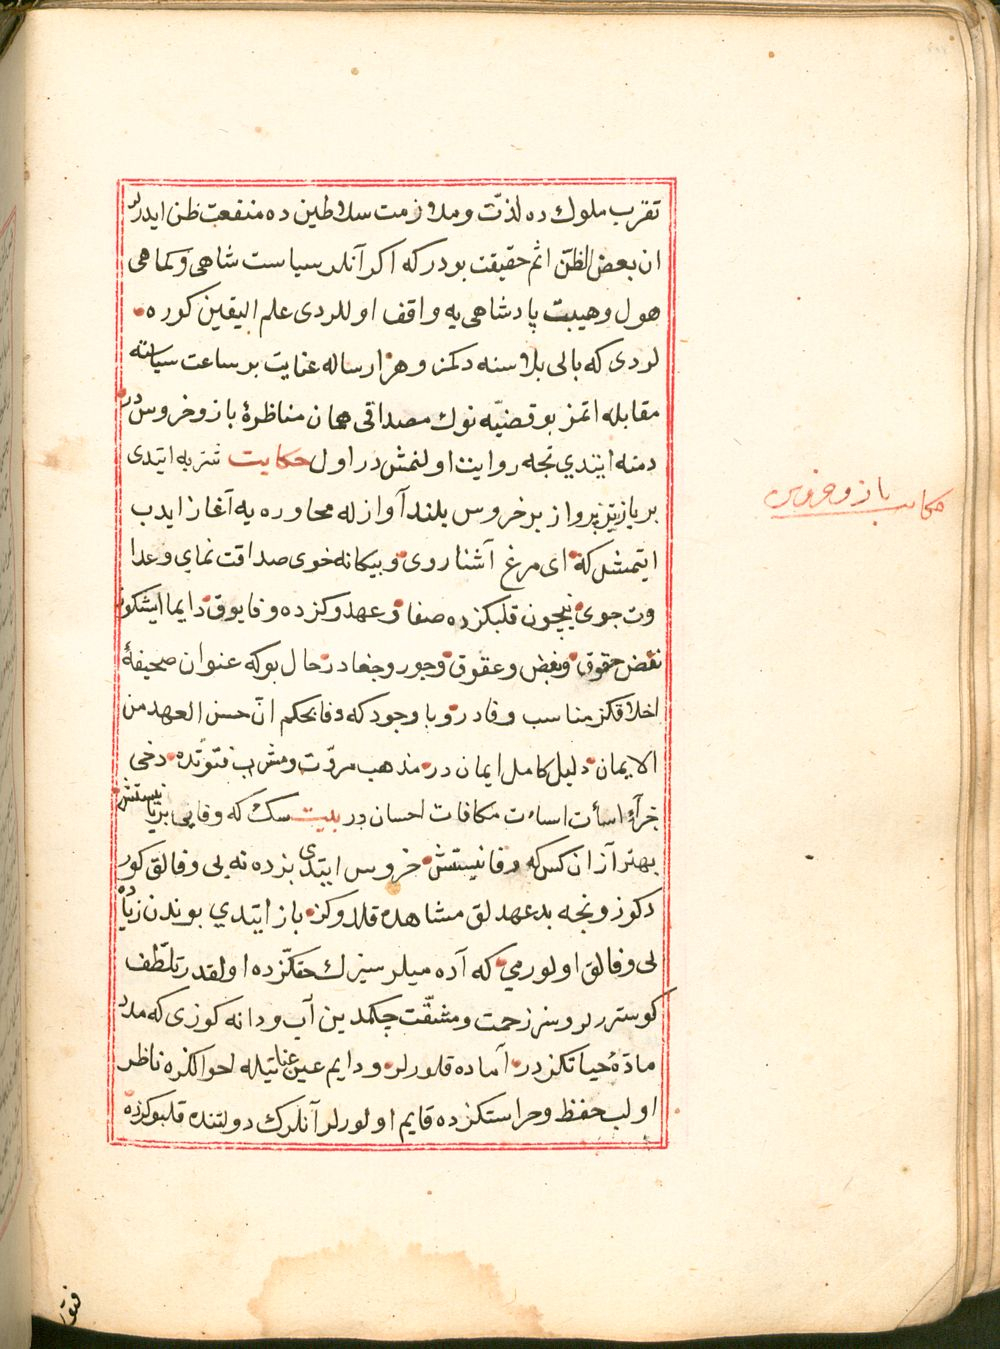 تقرب ملوك ده لذّت و ملازمت سلاطين ده منفعت ظن ايدرلر
ان بعض الظنّ اثم حقيقت بودر كه اكر آنلر سياست شاهى و كماهى
هول و هيبت پادشاهى يه واقف اوللردى علم اليقين كوره
لردى كه بالى بلاسنه دكمز و هزار ساله عنايت بر ساعت سياسته
مقابله اتمز بو قضيّه نوك مصداقى همان مناظرهٔ باز و خروس در
دمنه ايتدي نجه روايت اولنمش در اول حكايت شنزبه ايتدى
بر باز تيز پرواز بر خروس بلند آوازله محاوره يه آغاز ايدب
ايتمش كه اى مرغ آشنا روى و بيكانه خوى صداقت نماي و عدا
وت جوى نيچون قلبكزده صفا و عهدوكزده وفا يوق دايما ايشكوز
نقض حقوق و بغض و عقوق و جور و جفادر حال بو كه عنوان صحيفهٔ
اخلاقكز مناسب وفادر و با وجود كه وفا بحكم انّ حسن العهد من
الايمان دليل كامل ايمان در مذهب مروّت و مشرب فتوّتده دخى
جزآء اسأت اساءت مكافات احسان در بيت سك كه وفايى بريانيستش
بهتر از ان كس كه وفا نيستش خروس ايتدى بزده نه بى وفالق كور
دكوز و نجه بد عهدلق مشاهده قلدوكز باز ايتدي بوندن زياده
بى وفالق اولورمي كه آدميلر سيزك حقكزده اولقدر تلطّف
كوسترر لر و سز زحمت و مشقّت چكمدين آب و دانه كوزى كه مدد
مادّهٔ حياتكزدر آماده قلورلر و دايم عين عنايتيله احوالكزه ناظر
اولب حفظ و حراستكزده قايم اولورلر آنلرك دولتنده قلبوكزده
حكايت باز و خروس